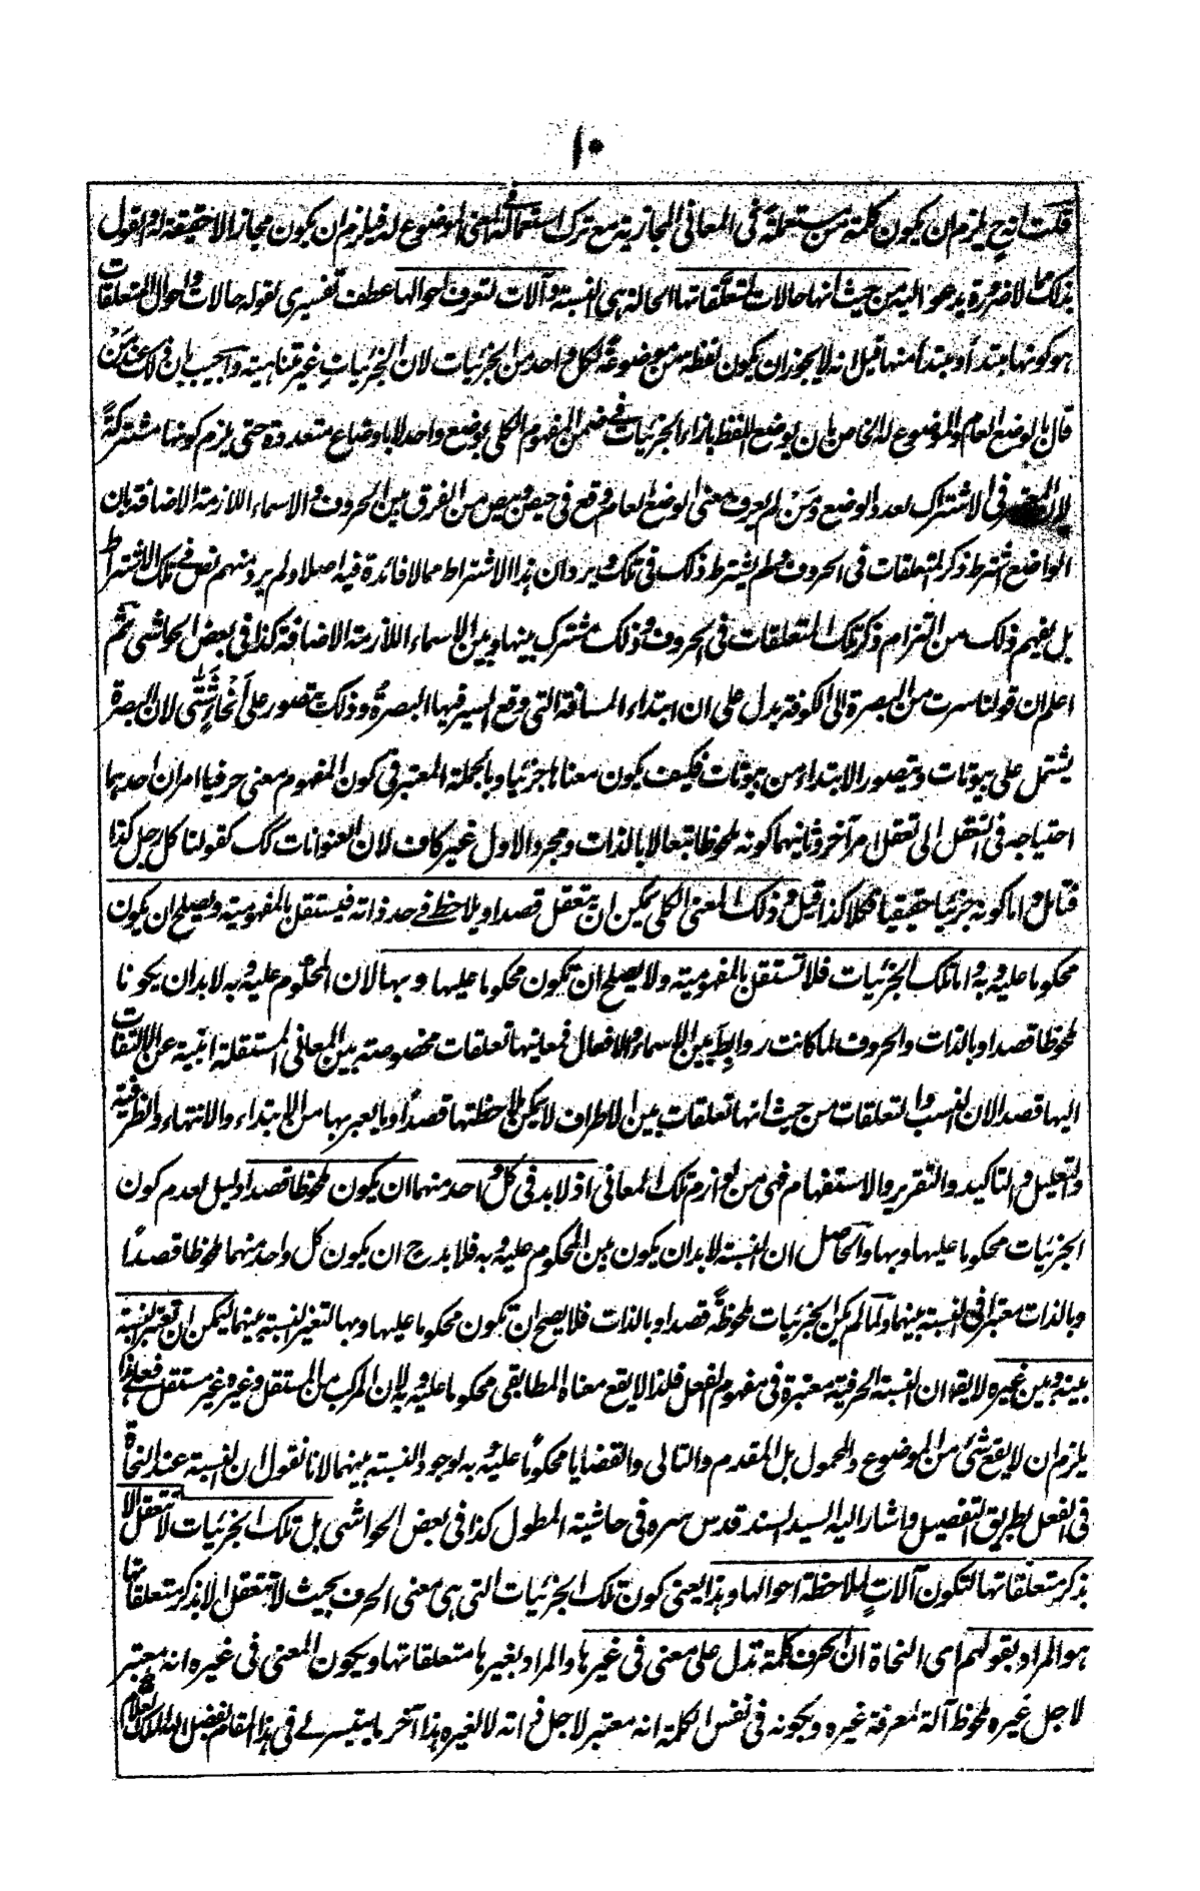 ١٠
قلت انه ح يلزم ان يكون كلمة من مستعملة في المعاني المجازية مع ترك استعمالها في المعنى الموضوع له فيلزم ان يكون مجازا لا حقيقة له والقول
بذلك لا ضرورة يدعو اليه من حيث انها حالات لمتعلقاتها الحالة هي النسبة وآلات لتعرف احوالها عطف تفسيري لقوله حالات واحوال المتعلقات
هو كونها مبتدأ او مبتدأ منها قيل انه لا يجوز ان يكون لفظة من موضوعة لكل واحد من الجزئيات لان الجزئيات غير متناهية واجيب بان ذلك عند من
قال بالوضع العام والموضوع له الخاص بان يوضع اللفظ بازاء الجزئيات في ضمن المفهوم الكلي بوضع واحد لا باوضاع متعددة حتى يلزم كونها مشتركة
لان المعتبر في الاشتراك تعدد الوضع ومن لم يعرف معنى الوضع العام وقع في حيص وبيص من الفرق بين الحروف والاسماء اللازمة الاضافة بان
الواضع اشترط ذكر المتعلقات في الحروف ولم يشترط ذلك في تلك ويرد ان هذا الاشتراط مما لا فائدة فيه اصلا ولم يرد منهم نص في تلك الاشتراط
بل يفهم ذلك من التزام ذكر تلك المتعلقات في الحروف وذلك مشترك بينها وبين الاسماء اللازمة الاضافة كذا في بعض الحواشي ثم
اعلم ان قولنا سرت من البصرة الى الكوفة يدل على ان ابتداء المسافة التي وقع السير فيها البصرة وذلك يتصور على انحاء شتى لان البصرة
يشتمل على بيوتات ويتصور الابتداء من بيوتات فكيف يكون معناها جزئيا وبالجملة المعتبر في كون المفهوم معنى حرفيا امران احدهما
احتياجه في التعقل الى تعقل امر آخر وثانيهما كونه ملحوظا تبعا لا بالذات ومجرد الاول غير كاف لان العنوانات كك كقولنا كل رجل كذا
فتامل واما كونه جزئيا حقيقيا فكلا كذا قيل وذلك المعنى الكلي يمكن ان يتعقل قصدا ويلاحظ في حد ذاته فيستقل بالمفهومية ويصلح ان يكون
محكوما عليه وبه واما تلك الجزئيات فلا تستقل بالمفهومية ولا يصلح ان تكون محكوما عليها وبها لان المحكوم عليه وبه لا بد ان يكونا
ملحوظا قصدا وبالذات والحروف لما كانت روابط بين الاسماء والافعال فمعانيها تعلقات مخصوصة بين المعاني المستقلة ابية عن الالتفات
اليها قصدا لان النسب والتعلقات من حيث انها تعلقات بين الاطراف لا يمكن ملاحظتها قصدا وما يعبر بها من الابتداء والانتهاء والظرفية
والتعليل والتاكيد والتقرير والاستفهام فهي من لوازم تلك المعاني اذ لا بد في كل واحد منهما ان يكون ملحوظا قصدا دليل لعدم كون
الجزئيات محكوما عليها وبها والحاصل ان النسبة لا بد ان يكون بين المحكوم عليه وبه فلا بد ح ان يكون كل واحد منهما ملحوظا قصدا
وبالذات معتبرا في النسبة بينهما ولما لم يكن الجزئيات ملحوظة قصدا وبالذات فلا يصح ان تكون محكوما عليها وبها لتغير النسبة بينهما ليمكن ان تعتبر النسبة
بينه وبين غيره لا يقو ان النسبة الحرفية معتبرة في مفهوم الفعل فلذا لا يقع معناه المطابقي محكوما عليه وبه لان المركب من المستقل وغيره غير مستقل فعلى هذا
يلزم ان لا يقع شئ من الموضوع والمحمول بل المقدم والتالي والقضايا محكوما عليه وبه لوجود النسبة بينهما لانا نقول ان النسبة عند النحاة
في الفعل بطريق التفصيل واشار اليه السيد السند قدس سره في حاشية المطول كذا في بعض الحواشي بل تلك الجزئيات لا تتعقل الا
بذكر متعلقاتها لتكون آلات لملاحظة احوالها وهذا يعني كون تلك الجزئيات التي هي معنى الحرف بحيث لا تتعقل الا بذكر متعلقاتها
هو المراد بقولهم اى النحاة ان الحرف كلمة تدل على معنى في غيرها والمراد بغيرها متعلقاتها ويكون المعنى في غيره انه معتبر
لا جل غيره وملحوظ آلة لمعرفة غيره وبكونه في نفس الكلمة انه معتبر لاجل ذاته لا لغيره هذا آخر ما يتيسر لي في هذا المقام بفضل الله الملك العلام